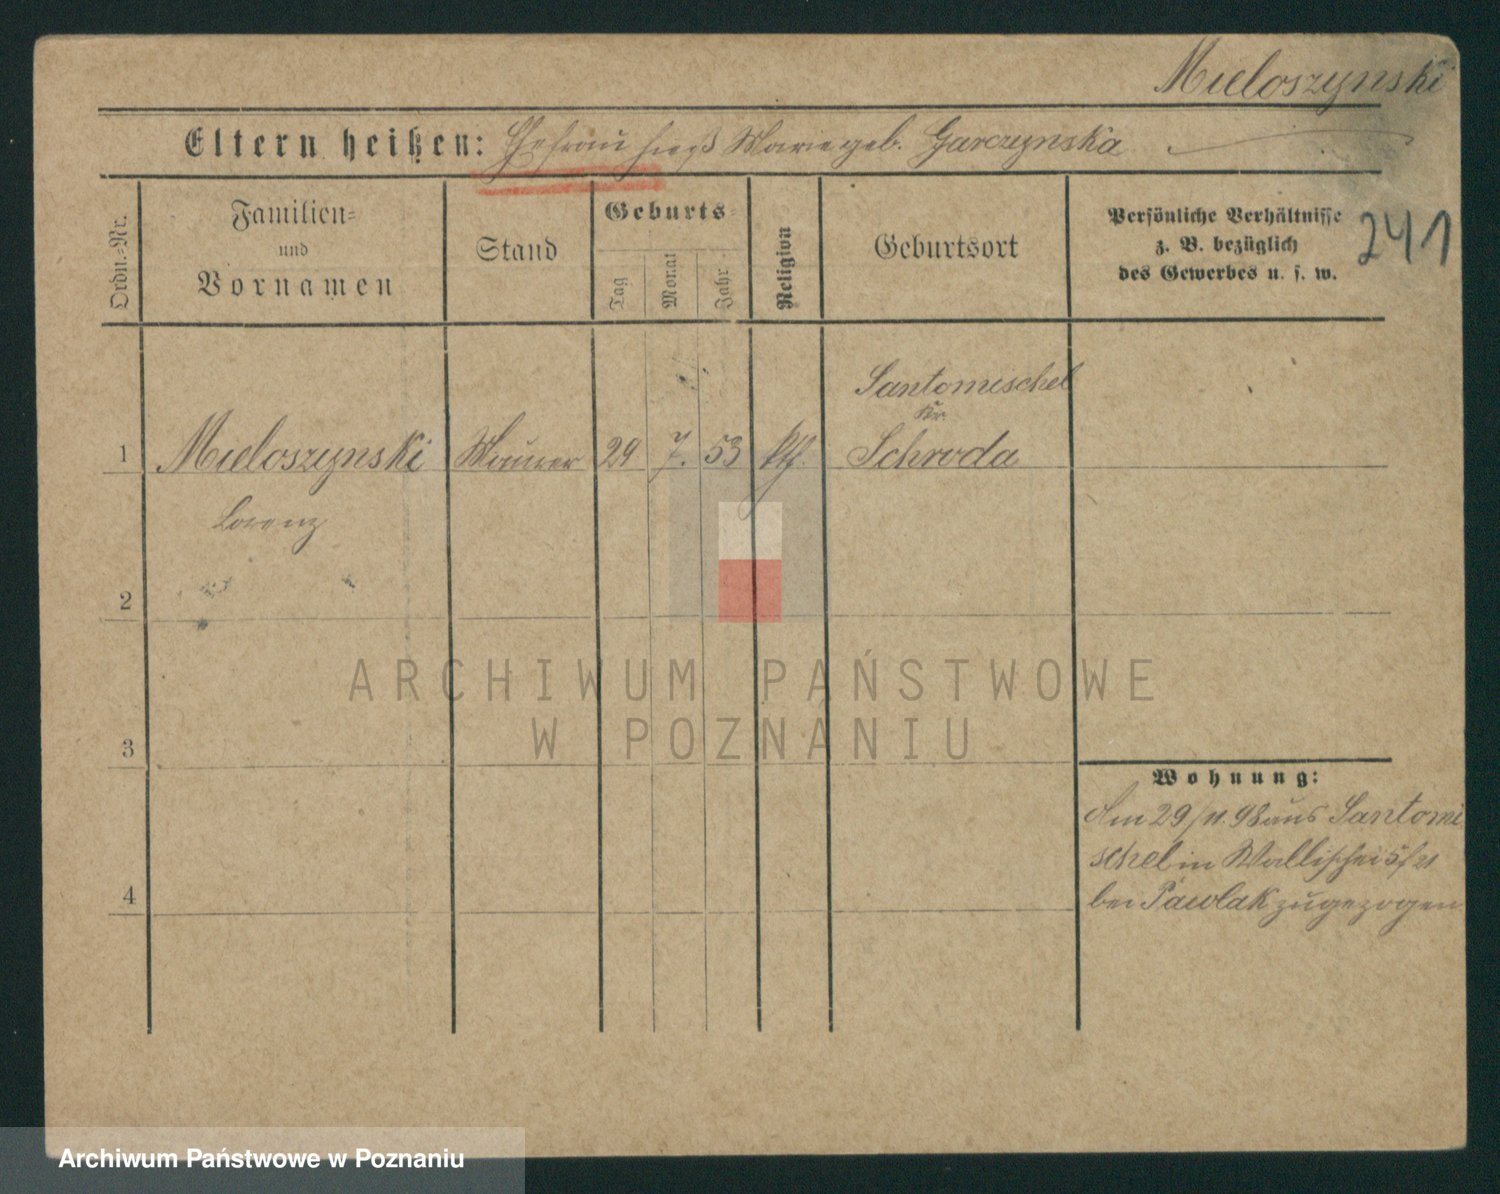 Mieloszynski
Eltern heißen: Ehefrau hieß Marie geb. Garczynska
241
Ordn.=Nr.
Familien=
und
Vornamen
Stand
Geburts=
Tag
Monat
Jahr
Religion
Geburtsort
Persönliche Verhältnisse
z. B. bezüglich
des Gewerbes u. s. w.
Santomischel
Kr.
1 Mieloszynski Maurer 29 7. 53 kth. Schroda
Lorenz
2
3
4
Wohnung:
Am 29/11. 98 aus Santomi
schel in Wallischei 5/21
bei Pawlak zugezogen
ARCHIWUM PAŃSTWOWE
W POZNANIU
Archiwum Państwowe w Poznaniu